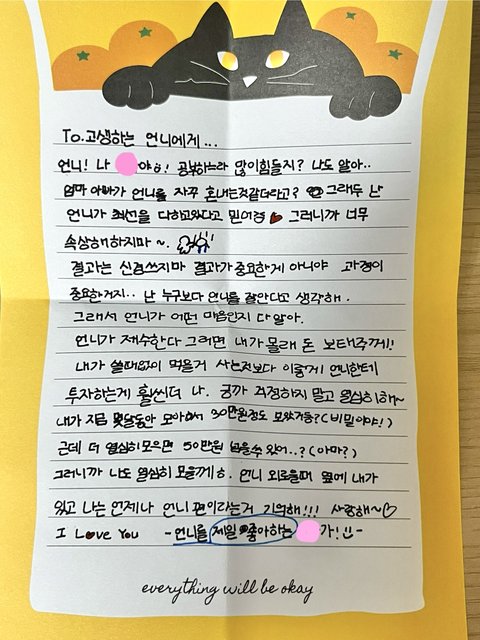 To. 고생하는 언니에게...
언니! 나 야ㅎ! 공부하느라 많이힘들지? 나도 알아..
엄마 아빠가 언니를 자꾸 혼내는것같더라고? 그래두 난
언니가 최선을 다하고있다고 믿어경 ♥ 그러니까 너무
속상해하지마 ~.
결과는 신경쓰지마 결과가 중요한게 아니야 과정이
중요한거지.. 난 누구보다 언니를 잘안다고 생각해.
그래서 언니가 어떤 마음인지 다알아.
언니가 재수한다 그러면 내가 몰래 돈 보태주께!
내가 쓸때없이 먹을거 사는것보다 이렇게 언니한테
투자하는게 훨씬더 나. 긍까 걱정하지 말고 열심히해~
내가 지금 몇달동안 모아놔서 30만원정도 모았거등?(비밀이야!)
근데 더 열심히모으면 50만원 넘을수 있어..?(아마?)
그러니까 나도 열심히 모을께ㅎ. 언니 외로울때 옆에 내가
있고 나는 언제나 언니 편이라는거 기억해!!! 사랑해~♡
I Love You - 언니를 제일 좋아하는 가! -
everything will be okay